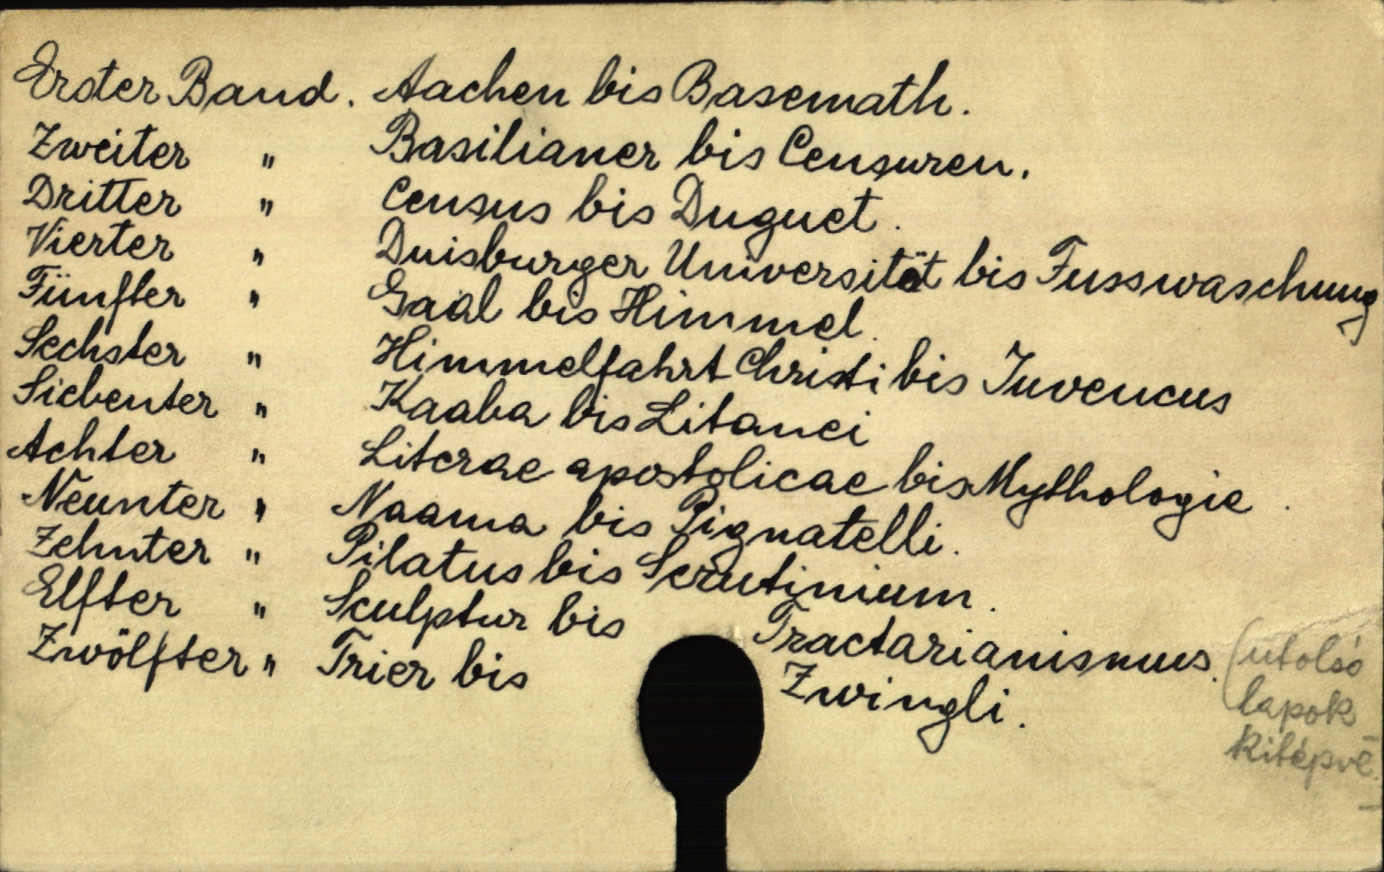 Erster Band. Aachen bis Basemath.
Zweiter " Basilianer bis Censuren.
Dritter " Census bis Duguet.
Vierter " Duisburger Universität bis Fusswaschung
Fünfter " Gaál bis Himmel.
Sechster " Himmelfahrt Christi bis Juvencus
Siebenter " Kaaba bis Litanei
Achter " Literae apostolicae bis Mythologie.
Neunter " Naama bis Pignatelli.
Zehnter " Pilatus bis Scrutinium.
Elfter " Sculptur bis Tractarianismus.
Zwölfter " Trier bis Zwingli.
(utolsó
lapok
kitépve